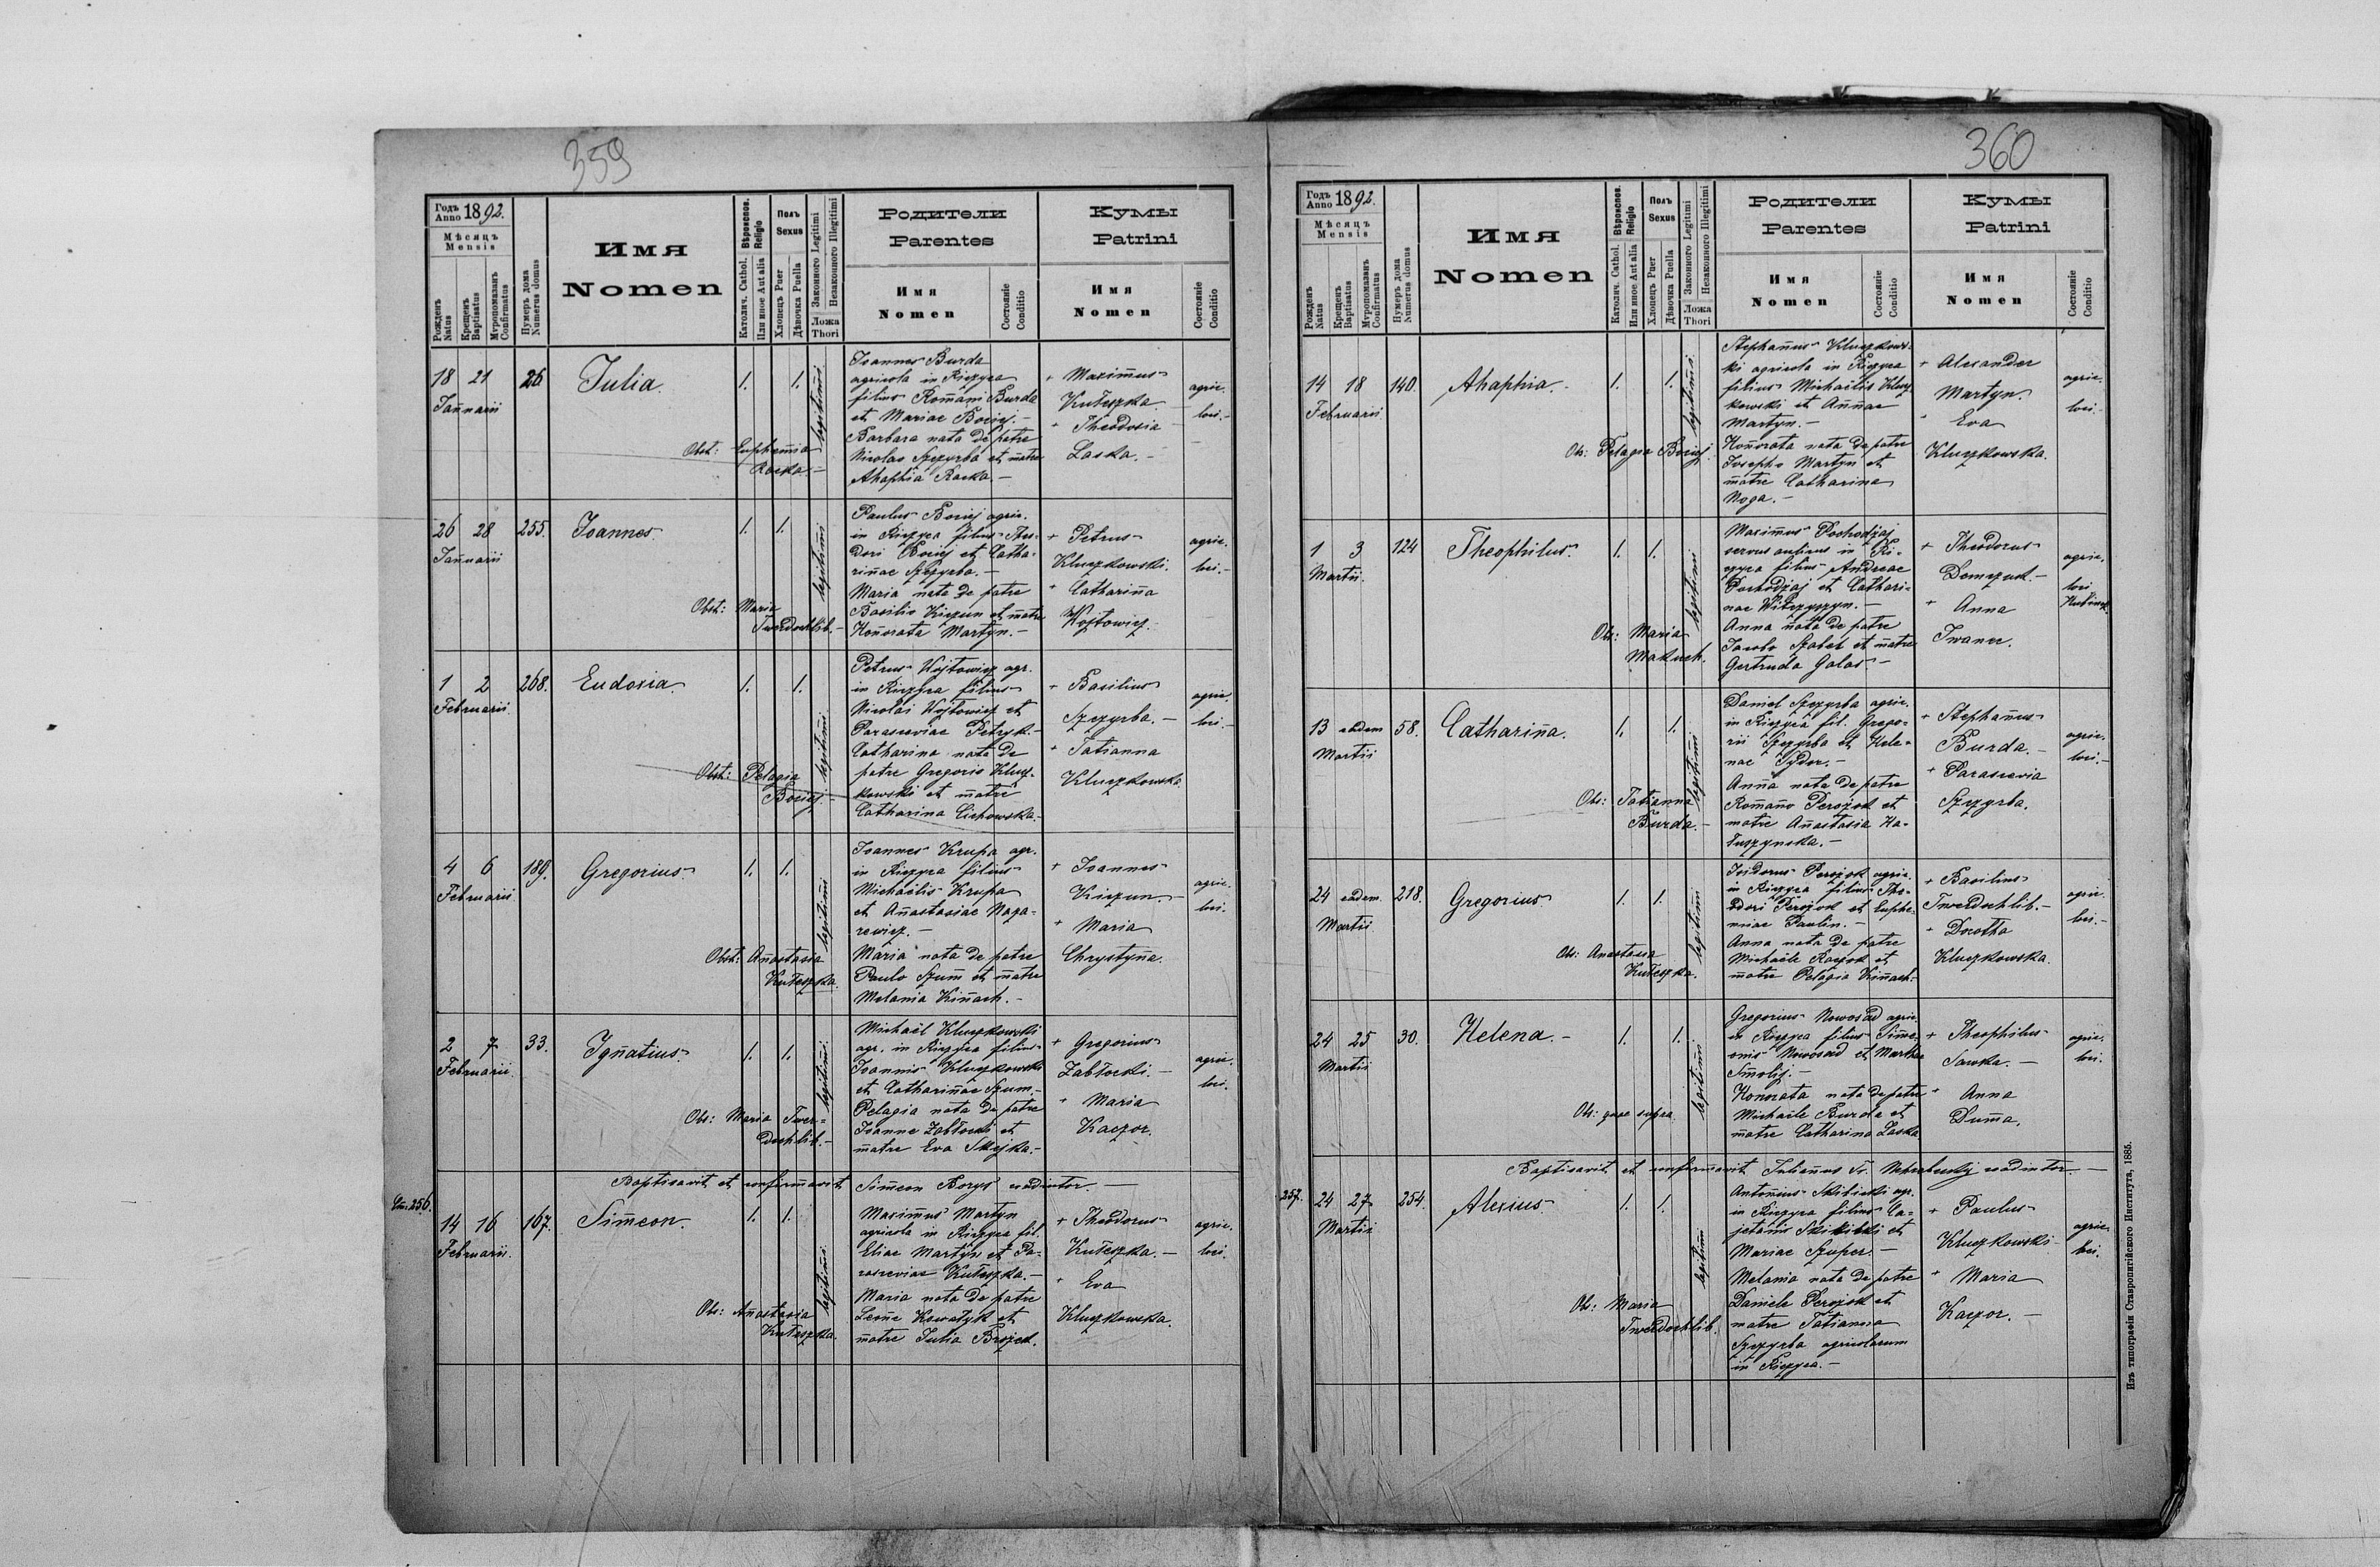 359
Годъ Anno 1892.
Мѣсяцъ
Mensis
Рожденъ Natus
Крещенъ Baptisatus
Мѵропомазанъ Confirmatus
Нумеръ дома Numerus domus
Имя
Nomen
Вѣроиспов. Religio
Католич. Cathol.
Или иное Aut alia
Полъ Sexus
Хлопецъ Puer
Дѣвочка Puella
Законного Legitimi
Незаконного Illegitimi
Ложа Thori
Родители
Parentes
Имя
Nomen
Состояніе Conditio
Кумы
Patrini
Имя
Nomen
Состояніе Conditio
18 21 26 Julia. 1. 1. legitimi
Januarii
Obst: Euphemia
Joannes Burda
agricola in
filius Romani Burda
et Mariae Bociej.-
Barbara nata de patre
Nicolao Szczyrba et matre
Ahaphia Racka.-
+ Maximus
Kułeszka
+ Theodosia
Laska.-
agric.
loci.-
26 28 255. Joannes 1. 1. legitimi
Januarii
Obst: Maria
Twerdochlib.-
Paulus Bociej agric.
in filius Theo-
dori Bociej et Catha-
rinae Szczyrba.-
Maria nata de patre
Basilio Kiczun et matre
Honorata Martyn.-
+ Petrus
Kluczkowski.
+ Catharina
Wojtowicz.
agric.
loci.-
1 2 268. Eudosia. 1. 1. legitimi
Februarii.
Obst: Pelagia
Bociej.-
Petrus Wojtowicz agr.
in filius
Nicolai Wojtowicz et
Parasceviae Petryk.-
Catharina nata de
patre Gregorio Klucz-
kowski et matre
Catharina Cichowska.-
+ Basilius
Szczyrba.-
+ Tatianna
Kluczkowska
agric.
loci.-
4 6 189. Gregorius 1. 1. legitimi
Februarii
Obst: Anastasia
Kułeszka.
Joannes Krupa agr.
in filius
Michaelis Krupa
et Anastasiae Naza-
rewicz.-
Maria nata de patre
Paulo Szum et matre
Melania Kinach.-
+ Joannes
Kiczun.-
+ Maria
Chrystyna.
agric.
loci.
2 7 33. Ignatius 1. 1. legitimi.
Februarii.
Obs: Maria Twer-
dochlib.-
Michael Kluczkowski
agr. in filius
Joannis Kluczkowski
et Catharinae Szum.-
Pelagia nata de patre
Joanne Zabłocki et
matre Eva Skojka.-
+ Gregorius
Zabłocki.-
+ Maria
Kaczor.
agric.
loci.
Baptisavit et confirmavit Simeon Borys coadiutor.-
256.
14 16 167. Simeon. 1. 1. legitimi
Februarii.
Obs: Anastasia
Kułeszka.
Maximus Martyn
agricola in fil.
Eliae Martyn et Pa-
rasceviae Kułeszka.-
Maria nata de patre
Leone Kowatyk et
matre Julia
+ Theodorus
Kułeszka.-
+ Eva
Kluczkowska.
agric.
loci.
360
Годъ Anno 1892.
Мѣсяцъ
Mensis
Рожденъ Natus
Крещенъ Baptisatus
Мѵропомазанъ Confirmatus
Нумеръ дома Numerus domus
Имя
Nomen
Вѣроиспов. Religio
Католич. Cathol.
Или иное Aut alia
Полъ Sexus
Хлопецъ Puer
Дѣвочка Puella
Законного Legitimi
Незаконного Illegitimi
Ложа Thori
Родители
Parentes
Имя
Nomen
Состояніе Conditio
Кумы
Patrini
Имя
Nomen
Состояніе Conditio
14 18 140. Ahaphia. 1. 1. legitimi.
Februarii
Ob: Pelagia Bociej.
Stephanus Kluczkows-
ki agricola in
filius Michaelis Klucz
kowski et Annae
Martyn.-
Honorata nata de patre
Josepho Martyn et
matre Catharina
Noga.-
+ Alexander
Martyn.
+ Eva
Kluczkowska.
agric.
loci.-
1 3 124 Theophilus. 1. 1. legitimi
Martii.
Ob: Maria
Makuch.
Maximus Pochodzaj
in
filius Andreae
Pochodzaj et Cathari-
nae
Anna nata de patre
Jacobo Szabel et matre
Gertruda Galas.-
+ Theodorus
+ Anna
Iwanec.
agric.
loci
13 eadem 58. Catharina. 1. 1. legitimi
Martii
Obs: Tatianna
Burda.-
Daniel Szczyrba agric.
in fil. Grego-
rii Szczyrba et Hele-
nae Sydor.-
Anna nata de patre
Romano Perożok et
matre Anastasia Ha-
łuszynska.-
+ Stephanus
Burda.-
+ Parascevia
Szczyrba.
agric.
loci.-
24 eadem 218. Gregorius 1. 1. legitimi
Martii
Ob: Anastasia
Kułeszka.
Isidorus Perożok agric.
in filius Theo-
dori Perożok et Euphe-
miae
Anna nata de patre
Michaele et
matre Pelagia Kinach.-
+ Basilius
Twerdochlib.-
+ Dorotha
Kluczkowska.
agric.
loci.-
24 25 30. Helena.- 1. 1. legitimi
Martii
Ob: quae supra.
Gregorius Nowosad agric.
in filius Sime-
onis Nowosad et Martha
Smolij.-
Honorata nata de patre
Michaele Burda et
matre Catharina Laska
+ Theophilus
Sawka.-
+ Anna
Duma.
agric.
loci.
Baptisavit et confirmavit Julianus coadiutor.-
257.
24 27 254. Alexius 1. 1. legitimi
Martii
Ob: Maria
Twerdochlib.
Antonius Skibicki agr.
in filius Ca-
jetani Skibicki et
Mariae Szuper.-
Melania nata de patre
Daniele Perożok et
matre Tatianna
Szczyrba agricolarum
in
+ Paulus
Kluczkowski
+ Maria
Kaczor.-
agric.
loci.
Изъ типографіи Ставропигійского Института, 1885.